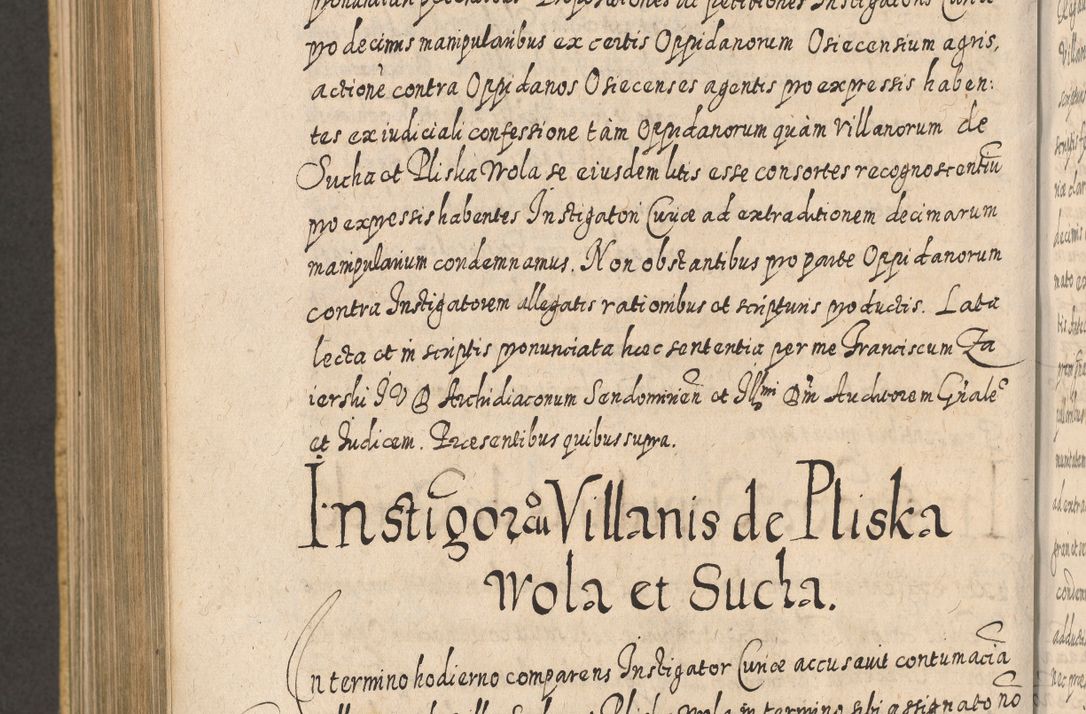 pro decimis manipularibus ex certis Oppidanorum Osiecensium agris,
actione contra Oppidanos Osiecenses agentis pro expressis haben:
tes ex iudiciali confessione tàm Oppidanorum quàm Villanorum de
Sucha et Pliska Wola se eiusdem litis esse consortes recognoscentiũ
pro expressis habentes Instigatori Curiæ ad extraditionem decimarum
manipularium condemnamus. Non obstantibus pro parte Oppidanorum
contra Instigatorem allegatis rationibus et scripturis productis. Lata
lecta et in scriptis pronunciata hæc sententia per me Franciscum Za
ierski I V D Archidiaconum Sandomirień et Illmi Dñi Auditorem Gñale
et Iudicem. Præsentibus quibus supra.
Instigor cũ Villanis de Pliska
Wola et Sucha.
In termino hodierno comparens Instigator Curiæ accusavit contumaciã
Pliska Wola in termino sibi assignato nõ